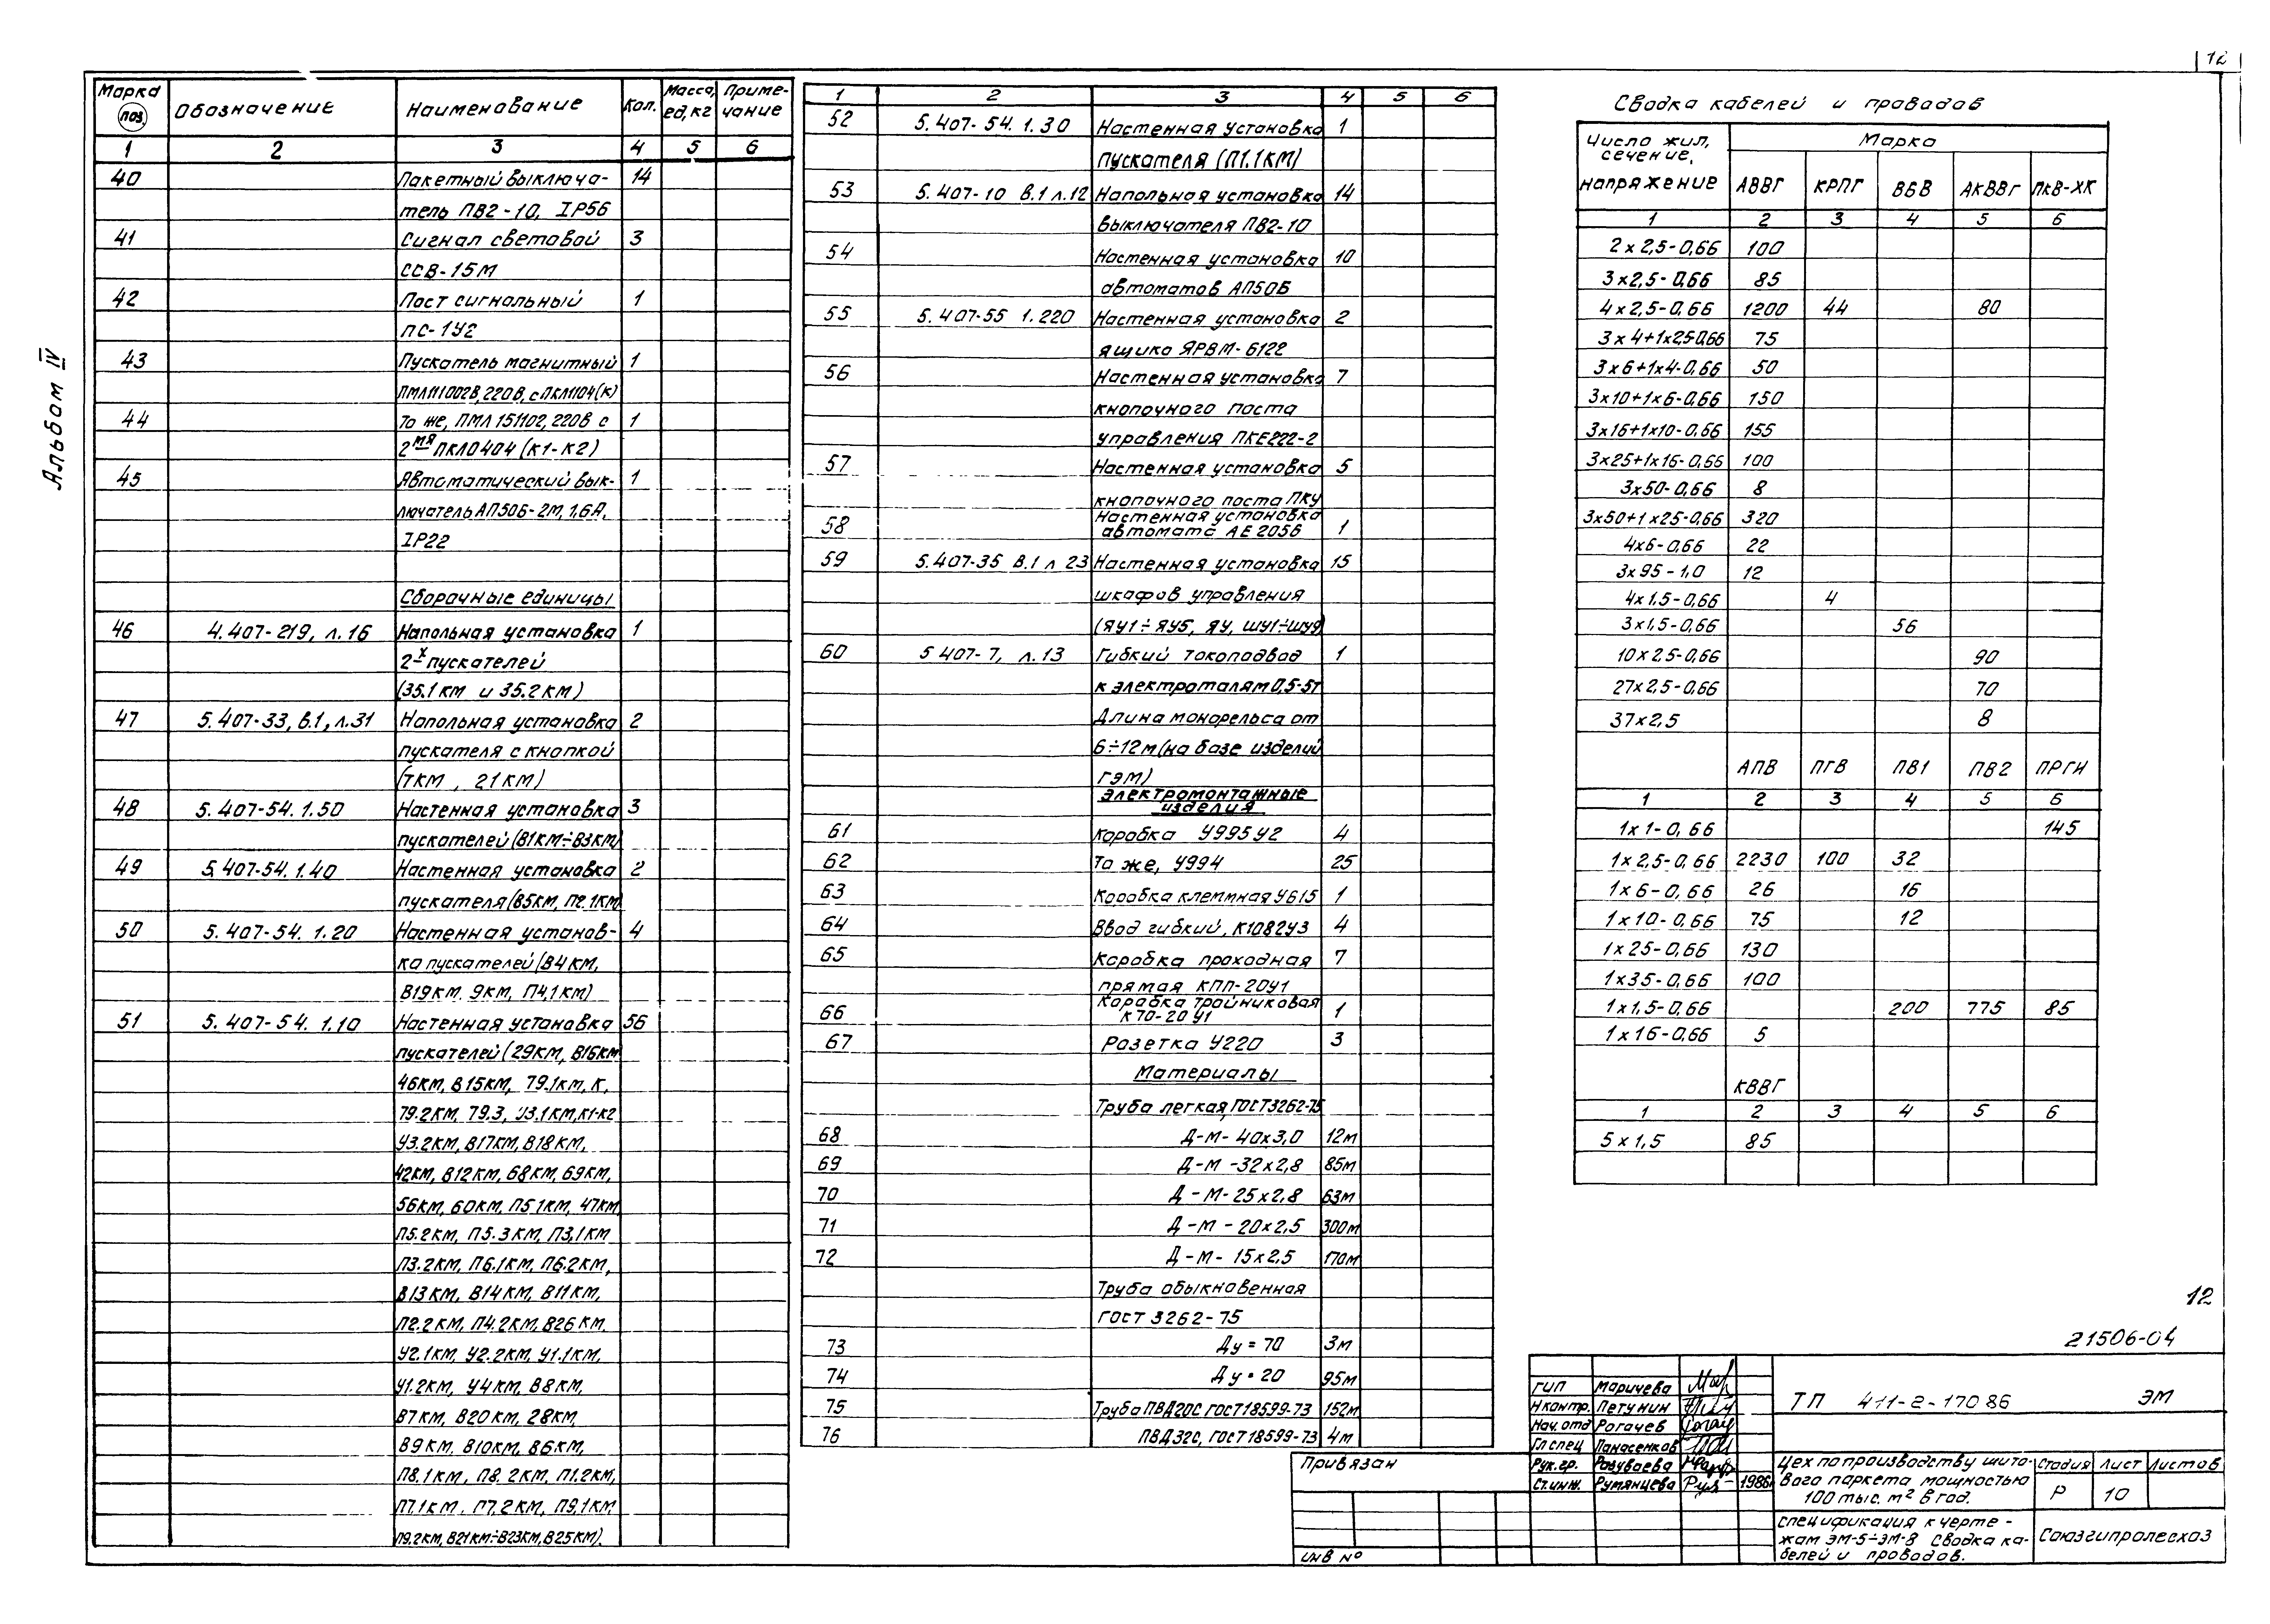 12
Альбом IV
Марка поз. Обозначение Наименование Кол. Масса, ед, кг Примечание
1 2 3 4 5 6
40 Пакетный выключа- 14
тель ПВ2-10, IP56
41 Сигнал световой 3
ССВ-15М
42 Пост сигнальный 1
ПС-1У2
43 Пускатель магнитный 1
ПМЛ111002В, 220В, с ПКЛ1104(К)
44 То же, ПМЛ 151102, 220В с 1
2мя ПКЛ0404 (К1-К2)
45 Автоматический вык- 1
лючатель АП50Б-2М, 1,6А,
IP22
Сборочные единицы
46 4.407-219, л.16 Напольная установка 1
2-х пускателей
(35.1КМ и 35.2КМ)
47 5.407-33, в.1, л.31 Напольная установка 2
пускателя с кнопкой
(7КМ, 21КМ)
48 5.407-54.1.50 Настенная установка 3
пускателей (В1КМ÷В3КМ)
49 5.407-54.1.40 Настенная установка 2
пускателя (В5КМ, П2.1КМ)
50 5.407-54.1.20 Настенная установ- 4
ка пускателей (В4КМ,
В19КМ, 9КМ, П4.1КМ)
51 5.407-54.1.10 Настенная установка 56
пускателей (29КМ, В16КМ
46КМ, В15КМ, 79.1КМ, К,
79.2КМ, 79.3, У3.1КМ, К1-К2
У3.2КМ, В17КМ, В18КМ,
42КМ, В12КМ, 68КМ, 69КМ,
56КМ, 60КМ, П5.1КМ, 47КМ,
П5.2КМ, П5.3КМ, П3.1КМ
П3.2КМ, П6.1КМ, П6.2КМ,
В13КМ, В14КМ, В11КМ,
П2.2КМ, П4.2КМ, В26КМ,
У2.1КМ, У2.2КМ, У1.1КМ,
У1.2КМ, У4КМ, В8КМ,
В7КМ, В20КМ, 28КМ,
В9КМ, В10КМ, 86КМ,
П8.1КМ, П8.2КМ, П1.2КМ,
П7.1КМ, П7.2КМ, П9.1КМ
П9.2КМ, В21КМ÷В23КМ, В25КМ).
1 2 3 4 5 6
52 5.407-54.1.30 Настенная установка 1
пускателя (П1.1КМ)
53 5.407-10 в.1 л.12 Напольная установка 14
выключателя ПВ2-10
54 Настенная установка 10
автоматов АП50Б
55 5.407-55 1.220 Настенная установка 2
ящика ЯРВМ-6122
56 Настенная установка 7
кнопочного поста
управления ПКЕ222-2
57 Настенная установка 5
кнопочного поста ПКУ
58 Настенная установка автомата АЕ2056 1
59 5.407-35 в.1 л 23 Настенная установка 15
шкафов управления
(ЯУ1÷ЯУ5, ЯУ, ШУ1÷ШУ9)
60 5 407-7, л.13 Гибкий токоподвод 1
к электроталям 0,5-5т
Длина монорельса от
6÷12м (на базе изделий
ГЭМ)
Электромонтажные
изделия
61 Коробка У995У2 4
62 То же, У994 25
63 Коробка клеммная У615 1
64 Ввод гибкий, К1082У3 4
65 Коробка проходная 7
прямая КПП-20У1
66 Коробка тройниковая К70-20У1 1
67 Розетка У220 3
Материалы
Труба легкая, ГОСТ3262-75
68 Д-М-40х3,0 12м
69 Д-М-32х2,8 85м
70 Д-М-25х2,8 63м
71 Д-М-20х2,5 300м
72 Д-М-15х2,5 170м
Труба обыкновенная
ГОСТ 3262-75
73 Ду = 70 3м
74 Ду = 20 95м
75 Труба ПВД20С ГОСТ18599-73 152м
76 ПВД32С, ГОСТ18599-73 4м
Сводка кабелей и проводов
Число жил, сечение, напряжение Марка
АВВГ КРПГ ВБВ АКВВГ ПКВ-ХК
1 2 3 4 5 6
2х2,5-0,66 100
3х2,5-0,66 85
4х2,5-0,66 1200 44 80
3х4+1х2,5-0,66 75
3х6+1х4-0,66 50
3х10+1х6-0,66 150
3х16+1х10-0,66 155
3х25+1х16-0,66 100
3х50-0,66 8
3х50+1х25-0,66 320
4х6-0,66 22
3х95-1,0 12
4х1,5-0,66 4
3х1,5-0,66 56
10х2,5-0,66 90
27х2,5-0,66 70
37х2,5 8
АПВ ПГВ ПВ1 ПВ2 ПРГИ
1 2 3 4 5 6
1х1-0,66 145
1х2,5-0,66 2230 100 32
1х6-0,66 26 16
1х10-0,66 75 12
1х25-0,66 130
1х35-0,66 100
1х1,5-0,66 200 775 85
1х16-0,66 5
КВВГ
1 2 3 4 5 6
5х1,5 85
12
21506-04
ГИП Маричева
Н контр. Петунин
Нач. отд Рогачев
Гл спец Панасенков
Рук. гр. Разуваева
Ст. инж. Румянцева 1986г
ТП 411-2-170 86 ЭМ
Цех по производству щито-
вого паркета мощностью
100 тыс. м² в год.
Стадия Лист Листов
Р 10
Спецификация к черте-
жам ЭМ-5÷ЭМ-8 Сводка ка-
белей и проводов.
Союзгипролесхоз
Привязан
ИНВ №